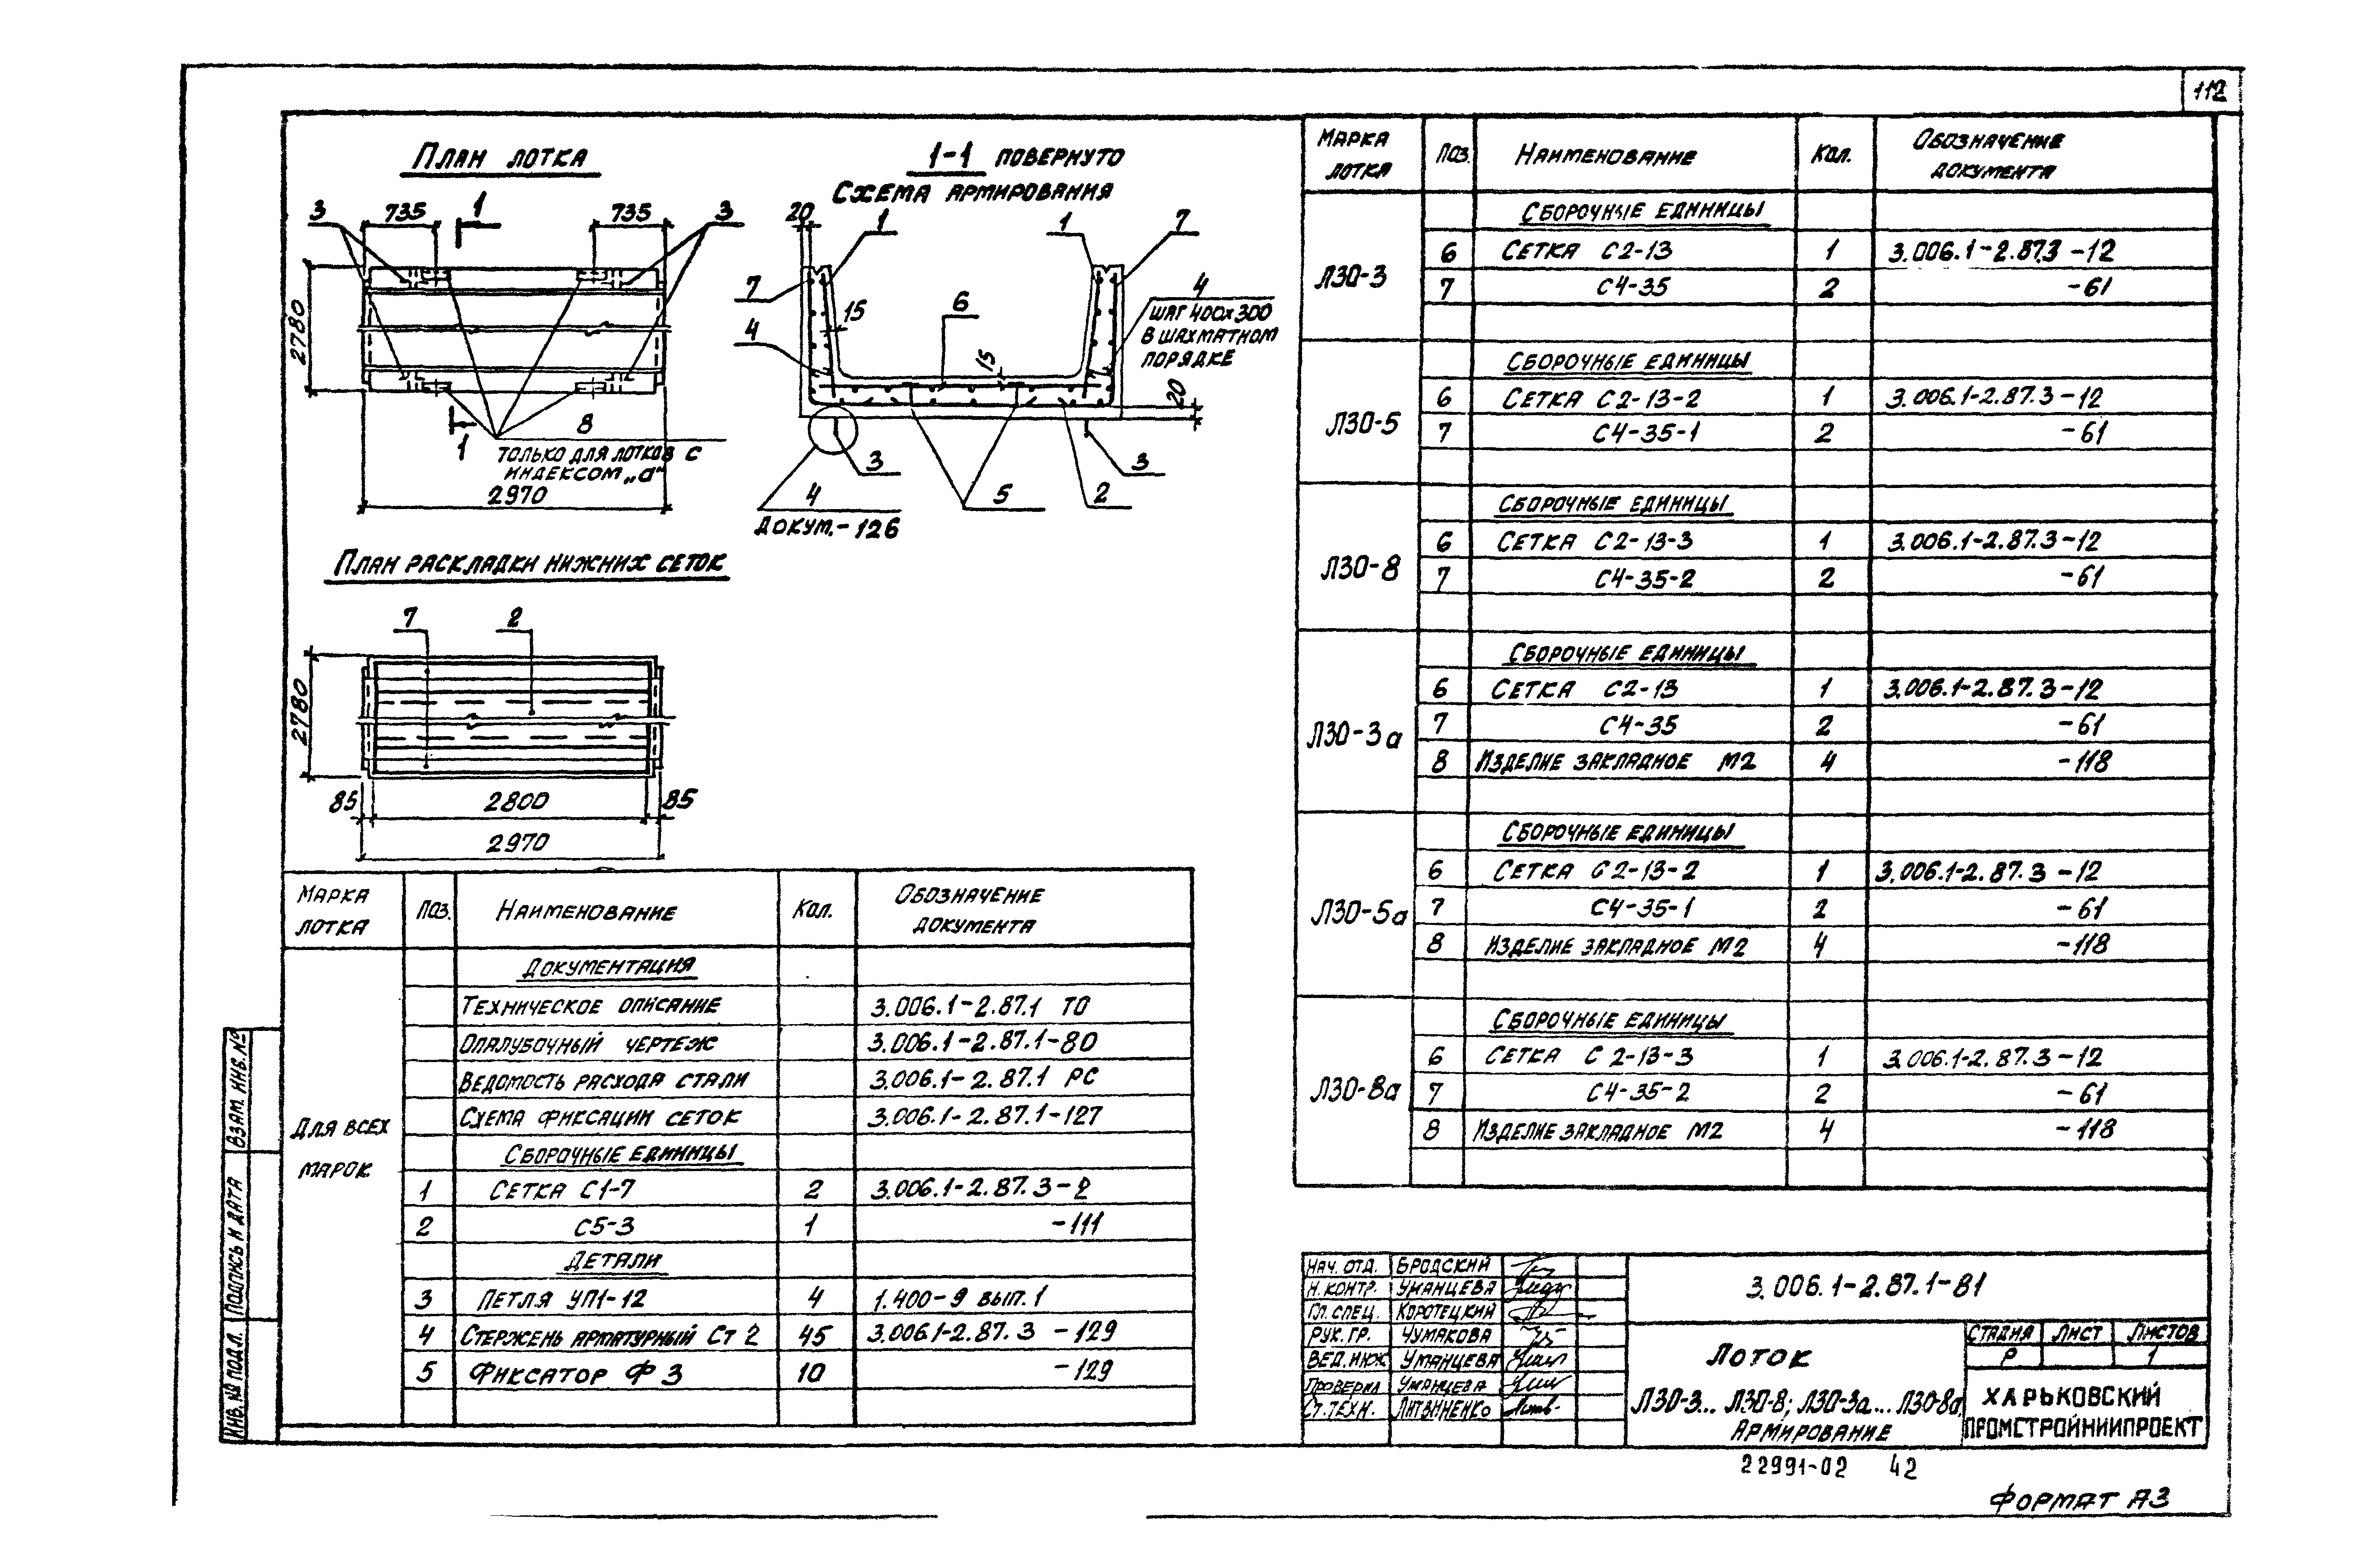 112
План лотка
1-1 повернуто
Схема армирования
3 735 1 735 3
2780
8
только для лотков с
индексом „а"
1
2970
20 1 1 7
7
15
4
6
15
4
шаг 400х300
в шахматном
порядке
20
3 3
4
5 2
докум.-126
План раскладки нижних сеток
7 2
2780
85 2800 85
2970
Марка лотка Поз. Наименование Кол. Обозначение документа
Для всех марок
Документация
Техническое описание 3.006.1-2.87.1 ТО
Опалубочный чертеж 3.006.1-2.87.1-80
Ведомость расхода стали 3.006.1-2.87.1 РС
Схема фиксации сеток 3.006.1-2.87.1-127
Сборочные единицы
1 Сетка С1-7 2 3.006.1-2.87.3-2
2 С5-3 1 -111
Детали
3 Петля УП1-12 4 1.400-9 вып.1
4 Стержень арматурный Ст 2 45 3.006.1-2.87.3 -129
5 Фиксатор Ф 3 10 -129
Марка лотка Поз. Наименование Кол. Обозначение документа
Л30-3
Сборочные единицы
6 Сетка С2-13 1 3.006.1-2.87.3-12
7 С4-35 2 -61
Л30-5
Сборочные единицы
6 Сетка С2-13-2 1 3.006.1-2.87.3-12
7 С4-35-1 2 -61
Л30-8
Сборочные единицы
6 Сетка С2-13-3 1 3.006.1-2.87.3-12
7 С4-35-2 2 -61
Л30-3а
Сборочные единицы
6 Сетка С2-13 1 3.006.1-2.87.3-12
7 С4-35 2 -61
8 Изделие закладное М2 4 -118
Л30-5а
Сборочные единицы
6 Сетка С2-13-2 1 3.006.1-2.87.3-12
7 С4-35-1 2 -61
8 Изделие закладное М2 4 -118
Л30-8а
Сборочные единицы
6 Сетка С2-13-3 1 3.006.1-2.87.3-12
7 С4-35-2 2 -61
8 Изделие закладное М2 4 -118
Взам. инв. №
Подпись и дата
Инв. № подл.
Нач. отд. Бродский
Н. контр. Уманцева
Гл. спец. Коротецкий
Рук. гр. Чумакова
Вед. инж. Уманцева
Проверил Уманцева
Ст. техн. Литвиненко
3.006.1-2.87.1-81
Лоток
Л30-3... Л30-8; Л30-3а... Л30-8а.
Армирование
Стадия Лист Листов
Р 1
Харьковский
Промстройниипроект
22991-02 42
Формат А3